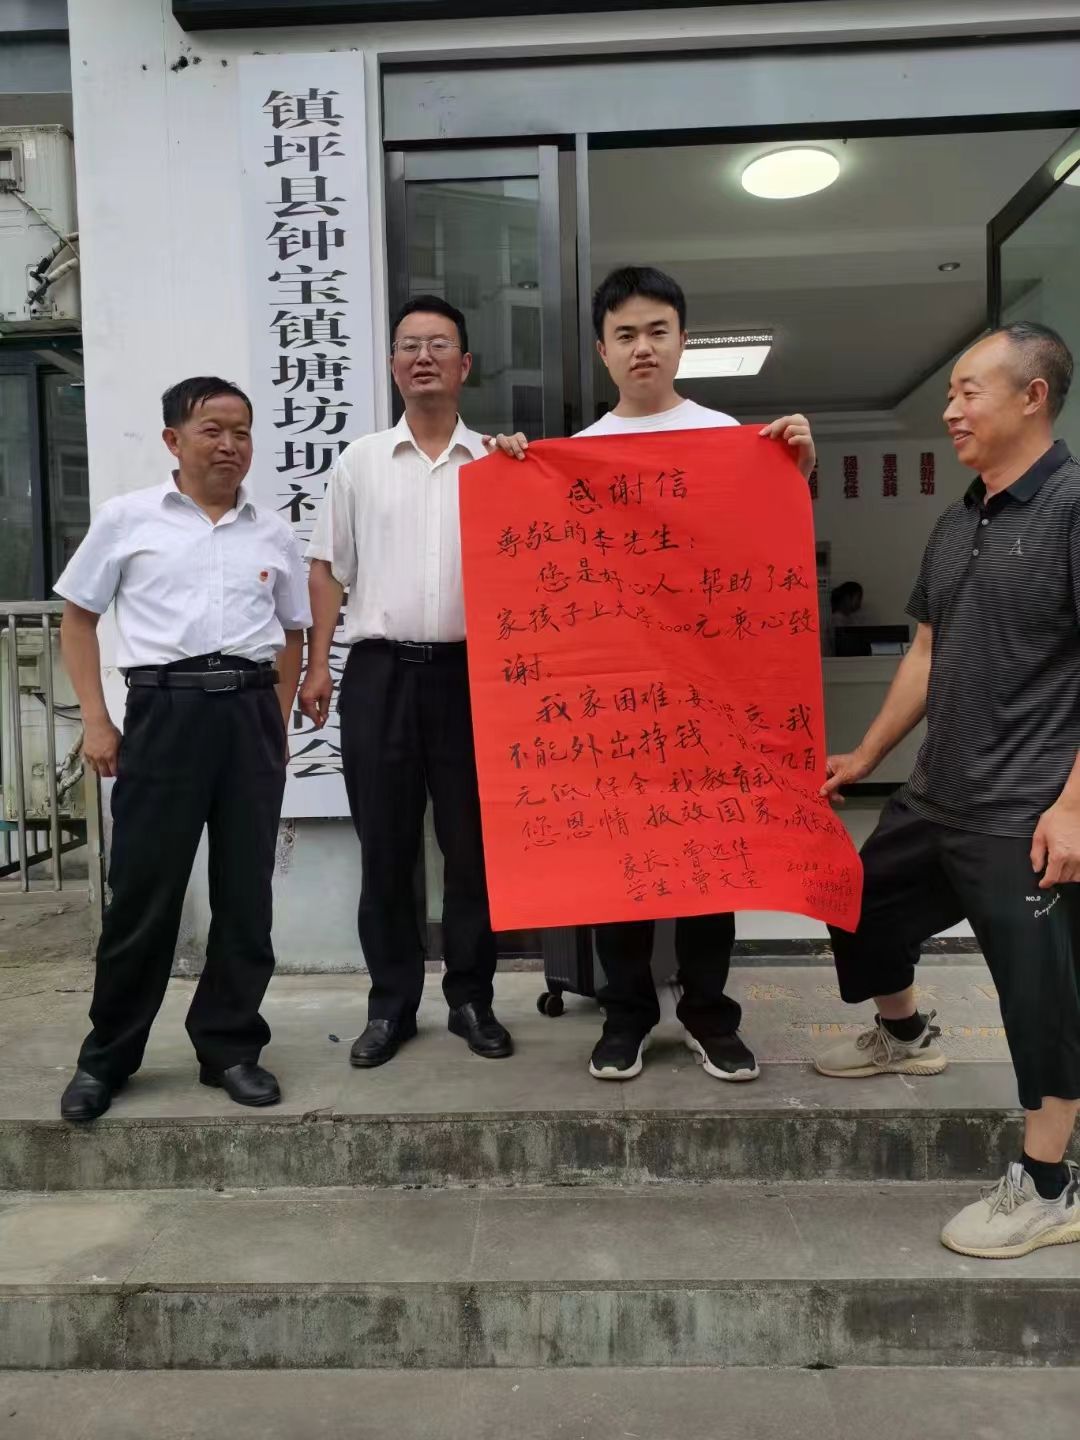 镇坪县钟宝镇塘坊坝社
会
感谢信
尊敬的李先生：
您是好心人，帮助了我
家孩子上大学2000元衷心致
谢。
我家困难，妻肾衰，我
不能外出挣钱，几百
元低保金，我教育我
您恩情，报放国家，成
家长：曾远华
学生：曾文宝
2024.
强党性
重实践
建新功
A
NO.